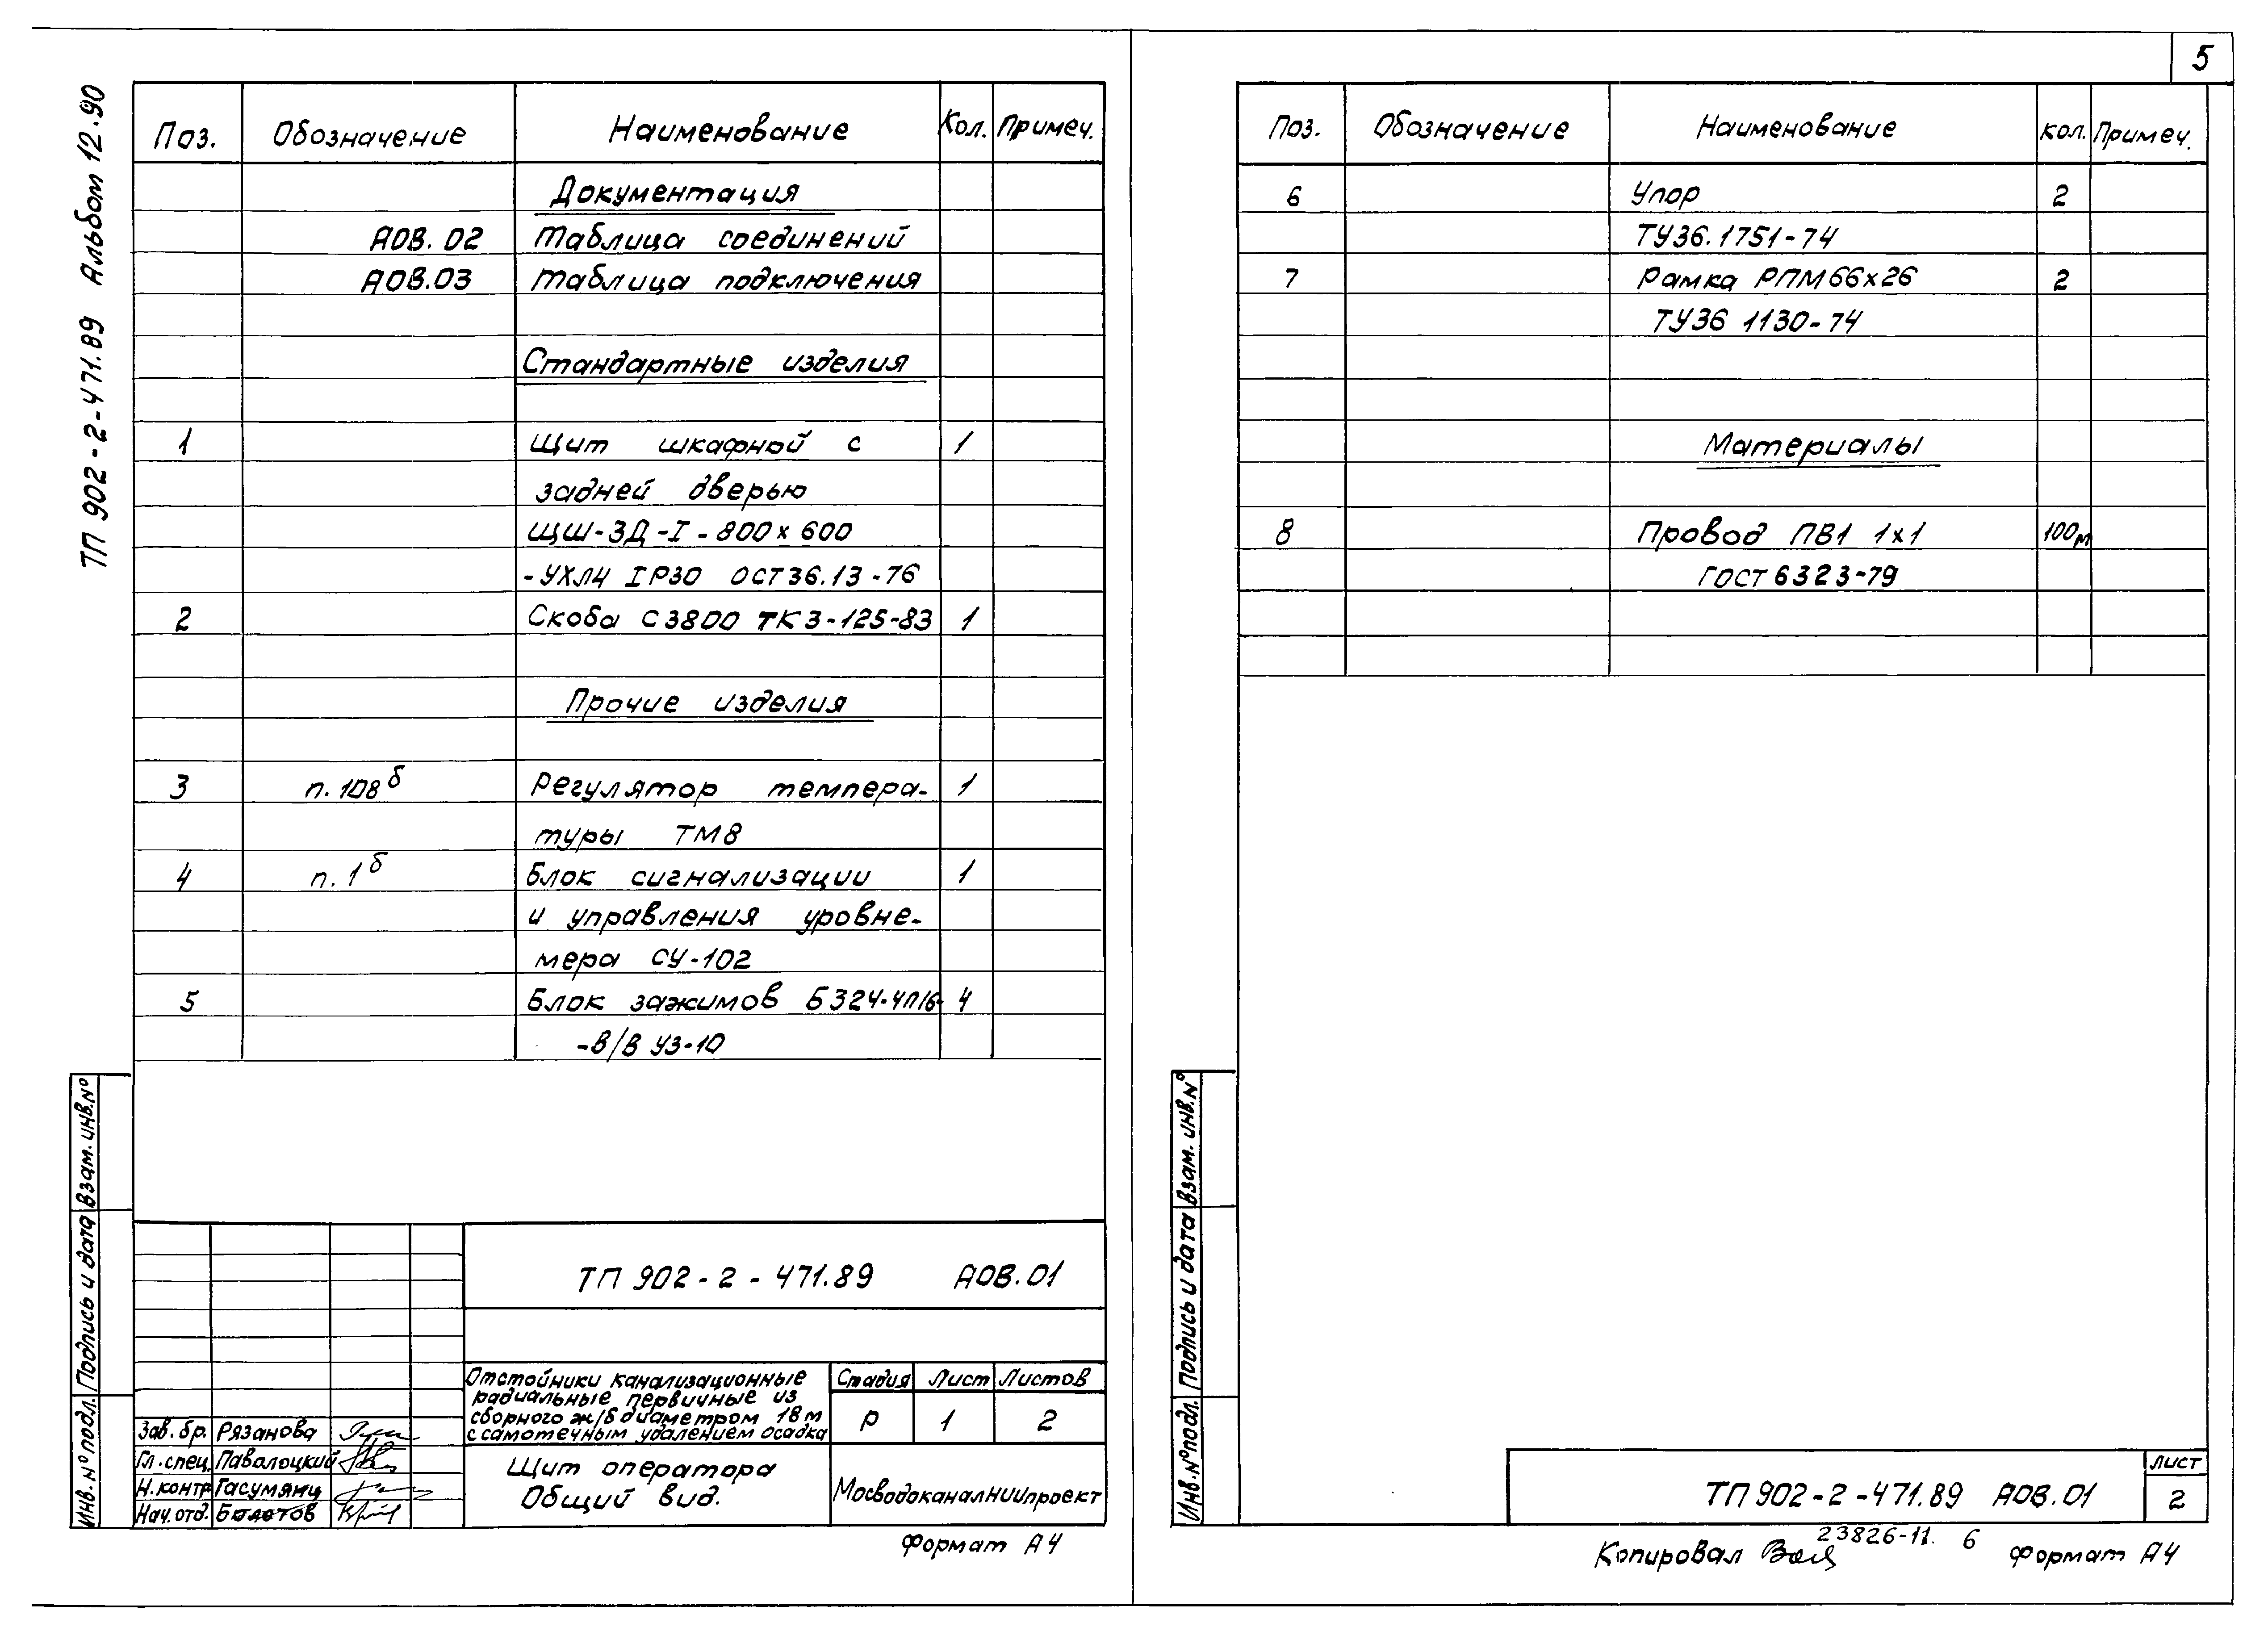 ТП 902-2-471.89 Альбом 12.90
Поз. Обозначение Наименование Кол. Примеч.
Документация
АОВ. 02 Таблица соединений
АОВ.03 Таблица подключения
Стандартные изделия
1 Щит шкафной с 1
задней дверью
ЩШ-ЗД-I-800х600
-УХЛ4 IP30 ОСТ36.13-76
2 Скоба С3800 ТК3-125-83 1
Прочие изделия
3 п.108б Регулятор темпера- 1
туры ТМ8
4 п.1б Блок сигнализации 1
и управления уровне-
мера СУ-102
5 Блок зажимов БЗ24-4П16- 4
-В/В У3-10
Инв.№подл. Подпись и дата Взам.инв.№
ТП 902-2-471.89 АОВ.01
Отстойники канализационные
радиальные первичные из
сборного ж/б диаметром 18м
с самотечным удалением осадка
Стадия Лист Листов
Р 1 2
Зав.бр. Рязанова
Гл.спец. Паволоцкий
Н.контр Гасумянц
Нач.отд. Болотов
Щит оператора
Общий вид.
МосводоканалНИИпроект
Формат А4
5
Поз. Обозначение Наименование кол. Примеч.
6 Упор 2
ТУ36.1751-74
7 Рамка РПМ66х26 2
ТУ36 1130-74
Материалы
8 Провод ПВ1 1х1 100м
ГОСТ 6323-79
Инв.№подл. Подпись и дата Взам.инв.№
ТП 902-2-471.89 АОВ.01
Лист
2
23826-11. 6
Копировал Формат А4